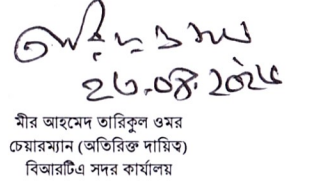 ২৩.০৪.২০২৫
মীর আহমেদ তারিকুল ওমর
চেয়ারম্যান (অতিরিক্ত দায়িত্ব)
বিআরটিএ সদর কার্যালয়